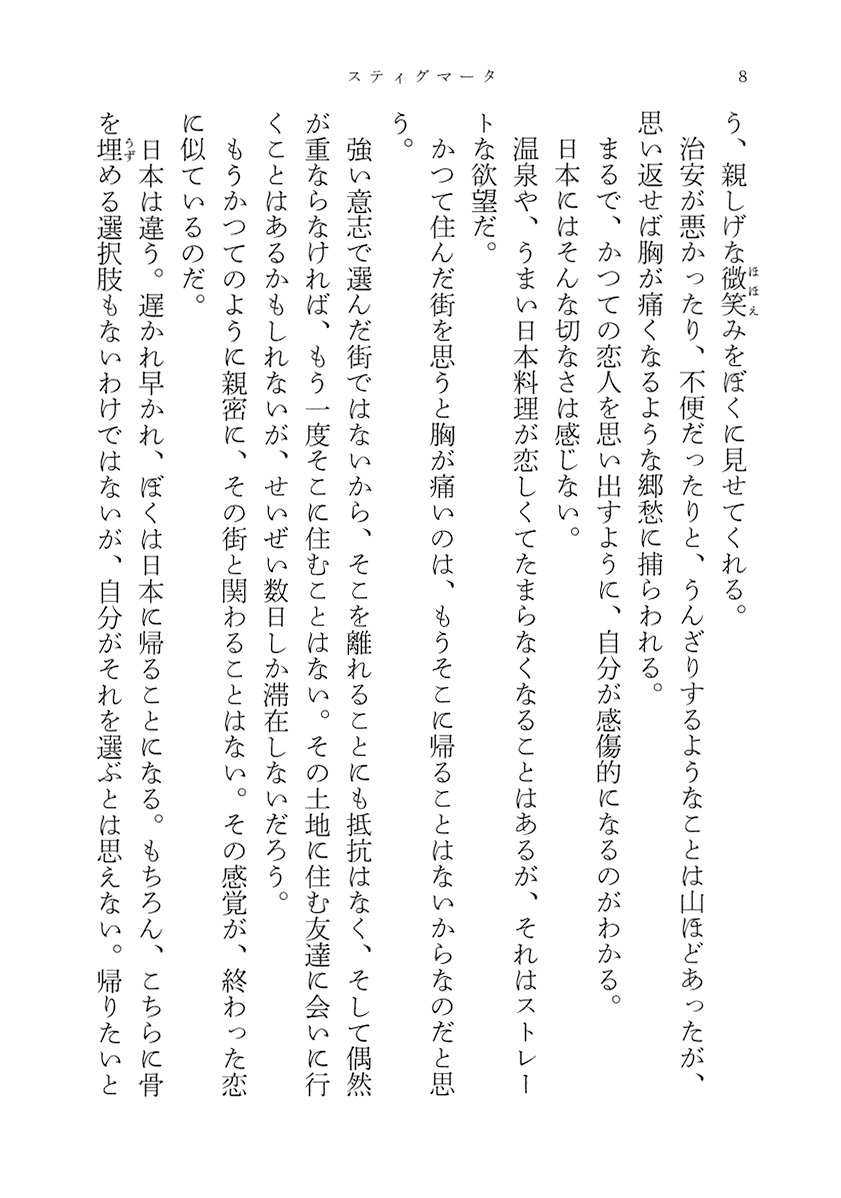 スティグマータ
8
う、親しげな微笑みをぼくに見せてくれる。
ほほえ
治安が悪かったり、不便だったりと、うんざりするようなことは山ほどあったが、
思い返せば胸が痛くなるような郷愁に捕らわれる。
まるで、かつての恋人を思い出すように、自分が感傷的になるのがわかる。
日本にはそんな切なさは感じない。
温泉や、うまい日本料理が恋しくてたまらなくなることはあるが、それはストレー
トな欲望だ。
かつて住んだ街を思うと胸が痛いのは、もうそこに帰ることはないからなのだと思
う。
強い意志で選んだ街ではないから、そこを離れることにも抵抗はなく、そして偶然
が重ならなければ、もう一度そこに住むことはない。その土地に住む友達に会いに行
くことはあるかもしれないが、せいぜい数日しか滞在しないだろう。
もうかつてのように親密に、その街と関わることはない。その感覚が、終わった恋
に似ているのだ。
日本は違う。遅かれ早かれ、ぼくは日本に帰ることになる。もちろん、こちらに骨
を埋める選択肢もないわけではないが、自分がそれを選ぶとは思えない。帰りたいと
うず